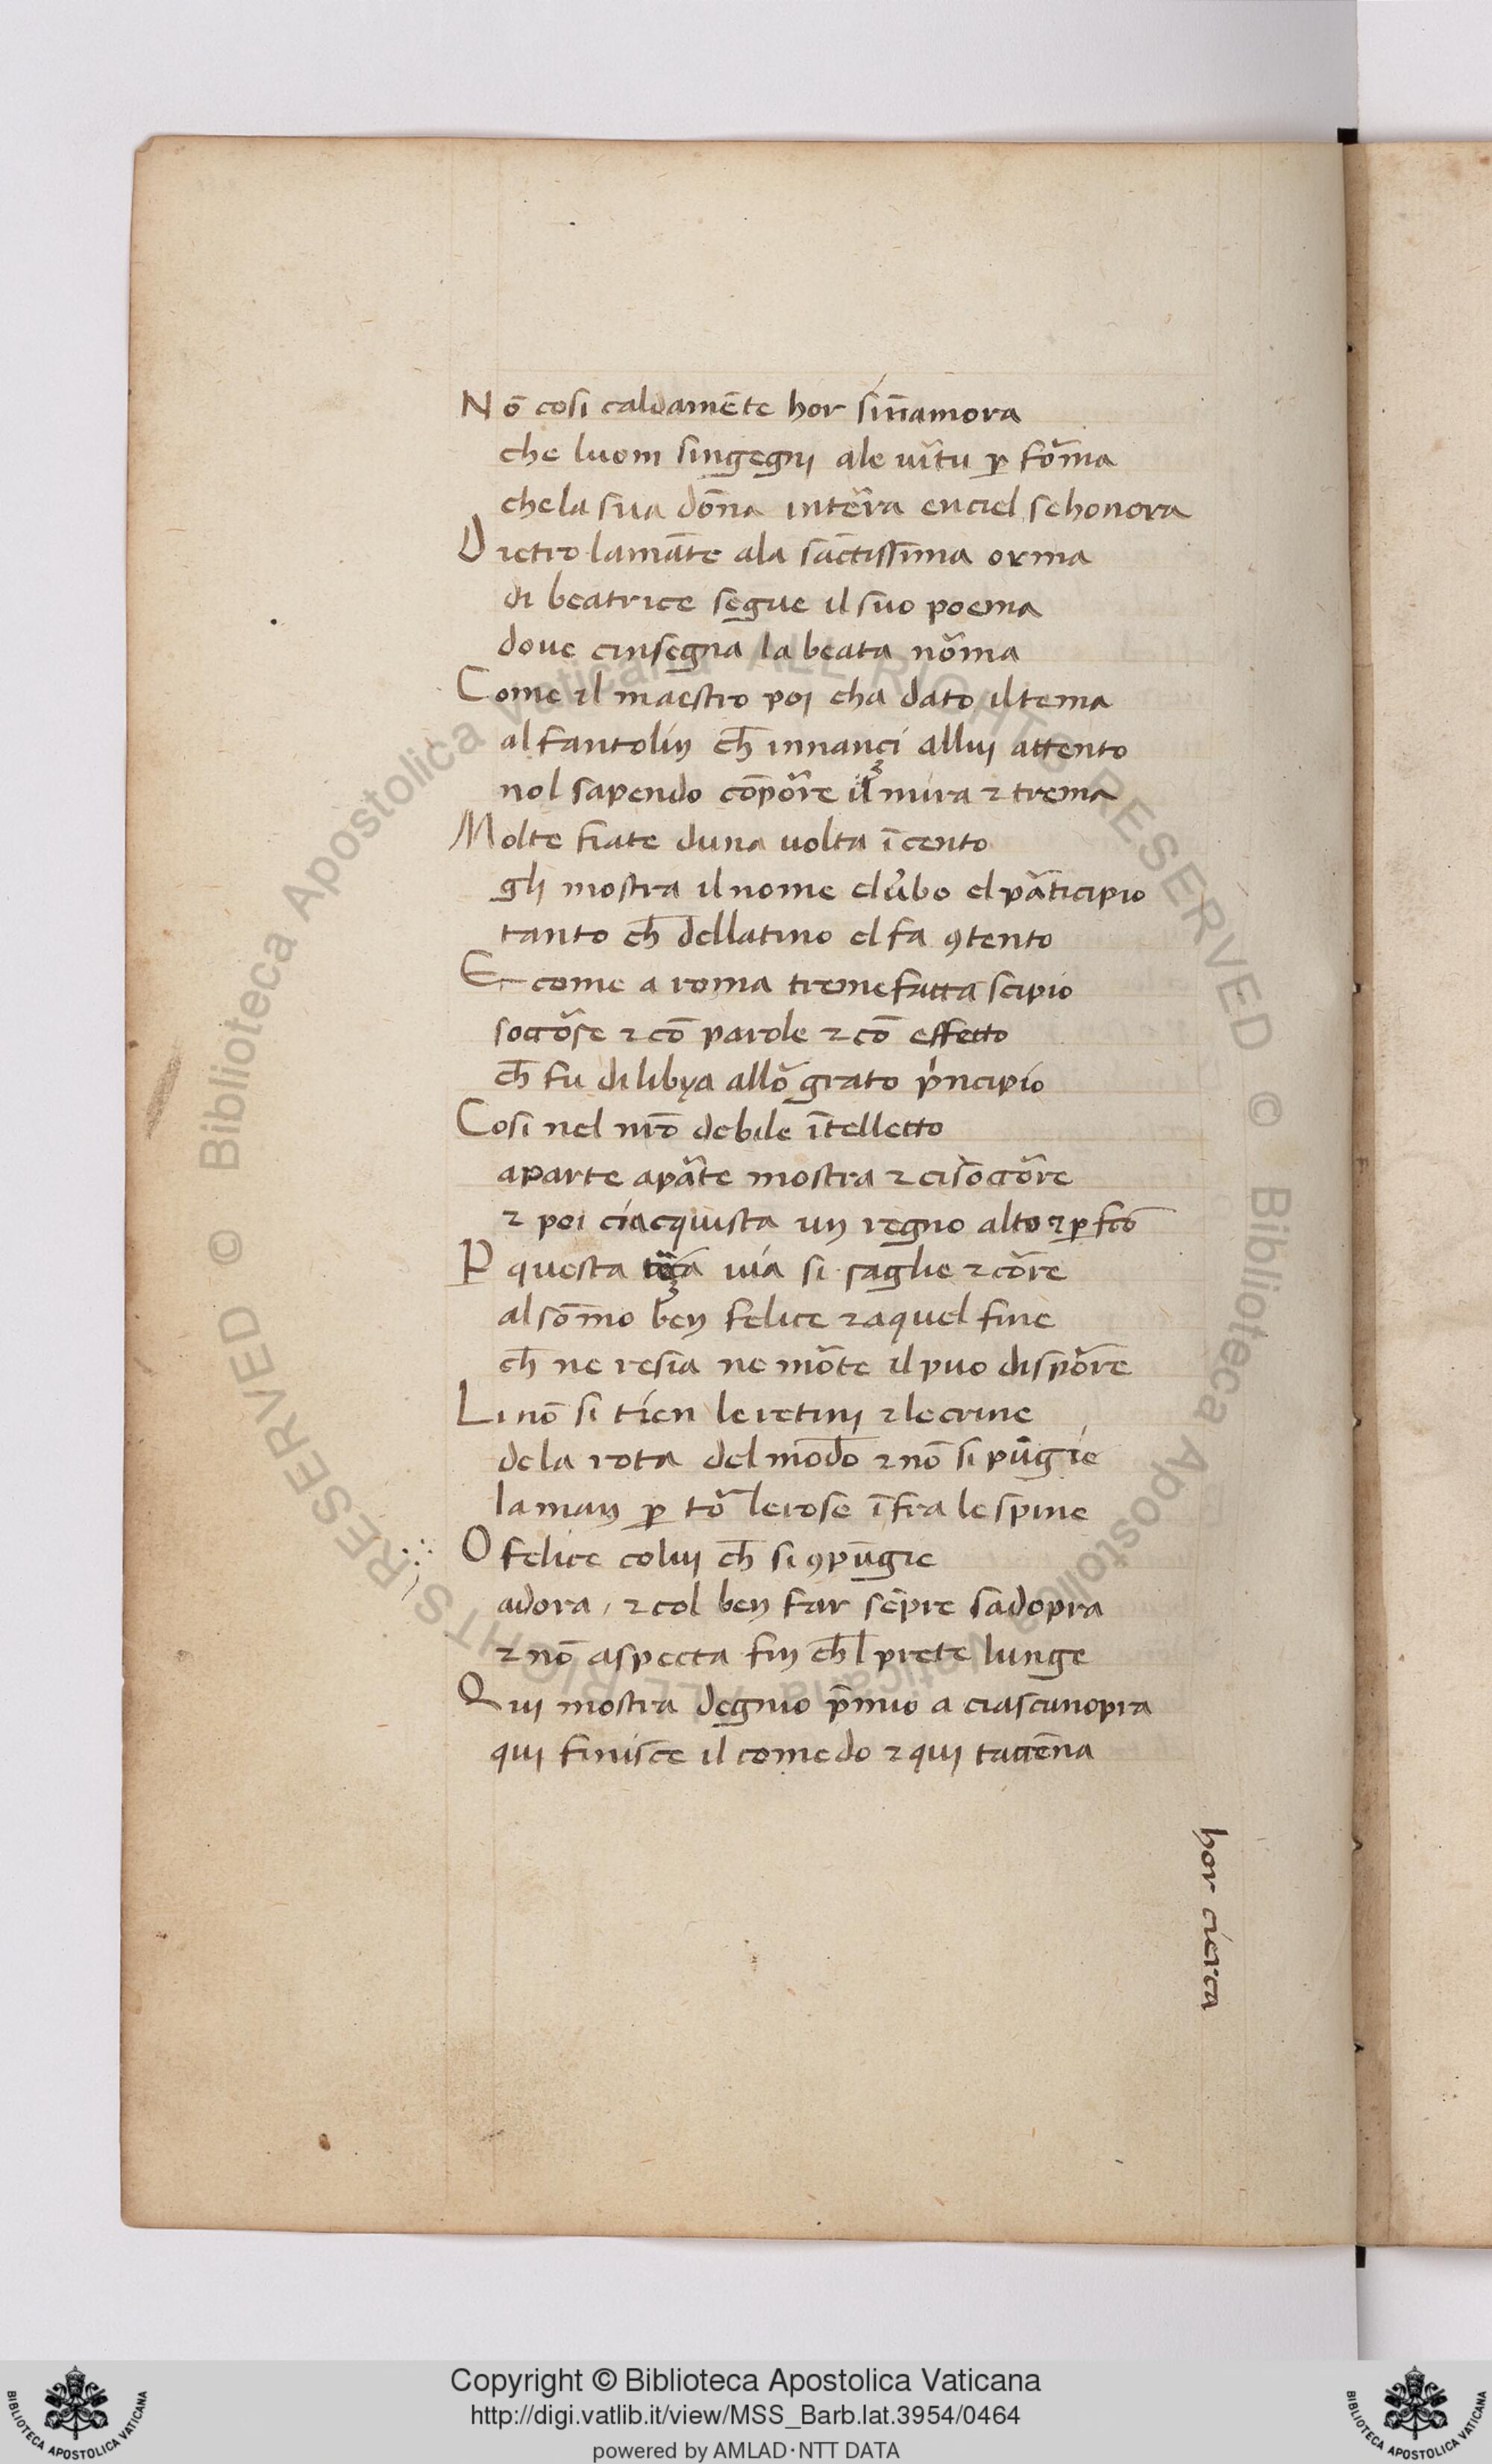 Nō cosi caldamēte hor sīnamora
che luom singegnj ale uītu ꝑ fōma
chela sua dōna intēra enciel sehonora
Dietro lamāte ala sāctissima orma
di beatrice segue il suo poema
doue cinsegna la beata nōma
Come il maestro poi cha dato iltema
al fantolin ch̄ innançi alluj attento
nol sapendo cōpōre il mira ⁊ trema
Molte fiate duna uolta ī cento
glj mostra il nome el ūbo el pāticipio
tanto ch̄ dellatino el fa ꝯtento
Et come a roma tremefatta scipio
soccōse ⁊ cō parole ⁊ cō effetto
ch̄ fu di libya allō grato p̄ncipio
Cosi nel nr̄o debile ītelletto
aparte apāte mostra ⁊ cisoccōre
⁊ poi ciacquista un regno alto ⁊ ꝑfc̄o
P questa via si saglie ⁊ cōre
al sōmo ben felice ⁊ aquel fine
ch̄ ne resia ne mōte il puo dispōre
Li nō si tien le retinj ⁊ le crine
dela rota del mōdo ⁊ nō si pūgie
la man ꝑ tō le rose īfra le spine
O felice coluj ch̄ si ꝯpūgie
adora, ⁊ col ben far sēpre sadopra
⁊ nō aspecta fin ch̄l prete lunge
Quj mostra degnio p̄mio a ciascunopra
quj finisce il comedo ⁊ quj taccēna
hor cierca
Copyright © Biblioteca Apostolica Vaticana
http://digi.vatlib.it/view/MSS_Barb.lat.3954/0464
powered by AMLAD·NTT DATA
Biblioteca Apostolica Vaticana ALL RIGHTS RESERVED ©
BIBLIOTECA APOSTOLICA VATICANA
BIBLIOTECA APOSTOLICA VATICANA